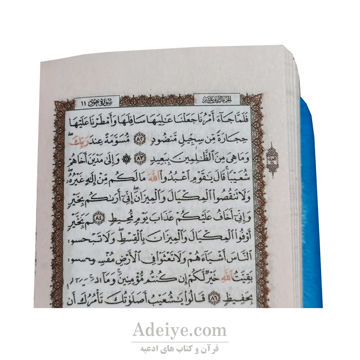 سورة هود ١١
فَلَمَّا جَآءَ أَمْرُنَا جَعَلْنَا عَـٰلِيَهَا سَافِلَهَا وَأَمْطَرْنَا عَلَيْهَا
حِجَارَةً مِّن سِجِّيلٍ مَّنضُودٍ ٨٢ مُّسَوَّمَةً عِندَ رَبِّكَ
وَمَا هِىَ مِنَ ٱلظَّـٰلِمِينَ بِبَعِيدٍ ٨٣ وَإِلَىٰ مَدْيَنَ أَخَاهُمْ
شُعَيْبًا قَالَ يَـٰقَوْمِ ٱعْبُدُوا۟ ٱللَّهَ مَا لَكُم مِّنْ إِلَـٰهٍ غَيْرُهُۥ
وَلَا تَنقُصُوا۟ ٱلْمِكْيَالَ وَٱلْمِيزَانَ إِنِّىٓ أَرَىٰكُم بِخَيْرٍ
وَإِنِّىٓ أَخَافُ عَلَيْكُمْ عَذَابَ يَوْمٍ مُّحِيطٍ ٨٤ وَيَـٰقَوْمِ
أَوْفُوا۟ ٱلْمِكْيَالَ وَٱلْمِيزَانَ بِٱلْقِسْطِ وَلَا تَبْخَسُوا۟
ٱلنَّاسَ أَشْيَآءَهُمْ وَلَا تَعْثَوْا۟ فِى ٱلْأَرْضِ مُفْسِدِينَ
بَقِيَّتُ ٱللَّهِ خَيْرٌ لَّكُمْ إِن كُنتُم مُّؤْمِنِينَ وَمَآ أَنَا۠
بِحَفِيظٍ ٨٦ قَالُوا۟ يَـٰشُعَيْبُ أَصَلَوٰتُكَ تَأْمُرُكَ أَن
Adeiye.com
قرآن و کتاب های ادعیه